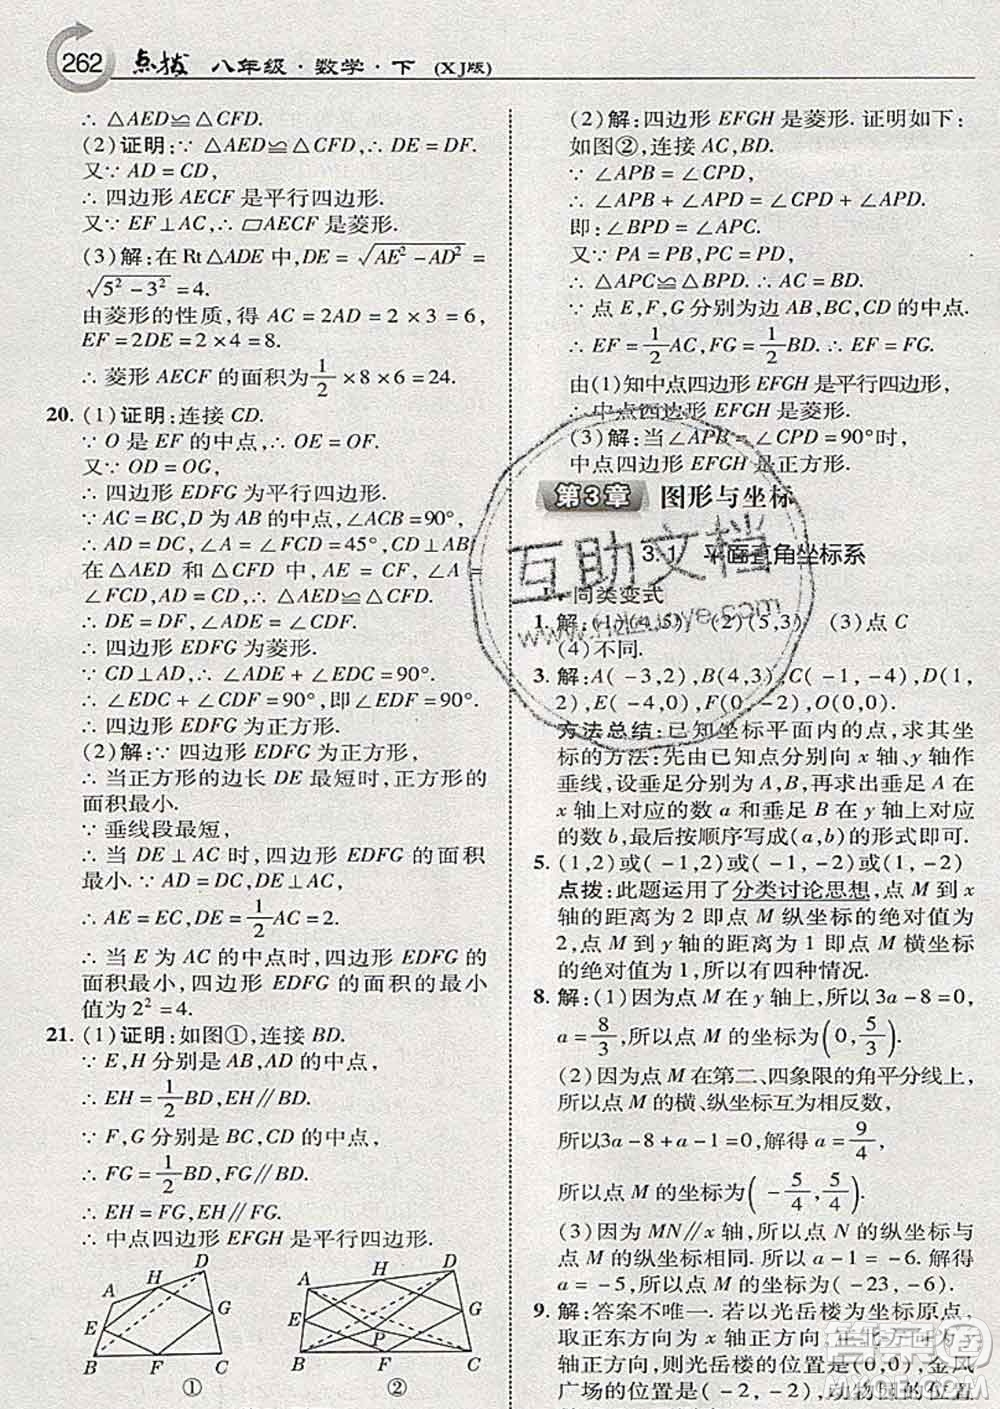 262 点拨 八年级·数学·下 (XJ版)
∴ △AED≌△CFD.
(2)证明:∵ △AED≌△CFD,∴ DE=DF.
又∵ AD=CD,
∴ 四边形 AECF 是平行四边形.
又∵ EF⊥AC,∴ ▱AECF 是菱形.
(3)解:在 Rt△ADE 中,DE=√(AE²-AD²)=
√(5²-3²)=4.
由菱形的性质,得 AC=2AD=2×3=6,
EF=2DE=2×4=8.
∴ 菱形 AECF 的面积为 1/2×8×6=24.
20. (1)证明:连接 CD.
∵ O 是 EF 的中点,∴ OE=OF.
又∵ OD=OG,
∴ 四边形 EDFG 为平行四边形.
∵ AC=BC,D 为 AB 的中点,∠ACB=90°,
∴ AD=CD,∠A=∠FCD=45°,CD⊥AB.
在△AED 和△CFD 中,AE=CF,∠A=∠FCD,
AD=CD,∴ △AED≌△CFD.
∴ DE=DF,∠ADE=∠CDF.
∴ 四边形 EDFG 为菱形.
∵ CD⊥AD,∴ ∠ADE+∠EDC=90°.
∴ ∠EDC+∠CDF=90°,即∠EDF=90°.
∴ 四边形 EDFG 为正方形.
(2)解:∵ 四边形 EDFG 为正方形,
∴ 当正方形的边长 DE 最短时,正方形的
面积最小.
∵ 垂线段最短,
∴ 当 DE⊥AC 时,四边形 EDFG 的面积
最小.∵ AD=DC,DE⊥AC,
∴ AE=EC,DE=1/2AC=2.
∴ 当 E 为 AC 的中点时,四边形 EDFG 的
面积最小,四边形 EDFG 的面积的最小
值为 2²=4.
21. (1)证明:如图①,连接 BD.
∵ E,H 分别是 AB,AD 的中点,
∴ EH=1/2BD,EH∥BD.
∵ F,G 分别是 BC,CD 的中点,
∴ FG=1/2BD,FG∥BD.
∴ EH=FG,EH∥FG.
∴ 中点四边形 EFGH 是平行四边形.
A H D E G B F C ①
A H D E G B F P C ②
(2)解:四边形 EFGH 是菱形. 证明如下:
如图②,连接 AC,BD.
∵ ∠APB=∠CPD,
∴ ∠APB+∠APD=∠CPD+∠APD.
即:∠BPD=∠APC.
又∵ PA=PB,PC=PD,
∴ △APC≌△BPD.∴ AC=BD.
∵ 点 E,F,G 分别为边 AB,BC,CD 的中点.
∴ EF=1/2AC,FG=1/2BD.∴ EF=FG.
由(1)知中点四边形 EFGH 是平行四边形,
∴ 中点四边形 EFGH 是菱形.
(3)解:当∠APB=∠CPD=90°时,
中点四边形 EFGH 是正方形.
第3章 图形与坐标
3.1 平面直角坐标系
同类变式
1. 解:(1)(4,5) (2)(5,3) (3)点 C
(4)不同.
3. 解:A(-3,2),B(4,3),C(-1,-
2),E(-4,0),F(0,-2),O(0,0).
方法总结:已知坐标平面内的点,求其坐
标的方法:先由已知点分别向 x 轴、y 轴作
垂线,设垂足分别为 A,B,再求出垂足 A 在
x 轴上对应的数 a 和垂足 B 在 y 轴上对应
的数 b,最后按顺序写成(a,b)的形式即可.
5. (1,2)或(-1,2)或(-1,-2)或(1,-2)
点拨:此题运用了分类讨论思想,点 M 到 x
轴的距离为 2 即点 M 纵坐标的绝对值为
2,点 M 到 y 轴的距离为 1 即点 M 横坐标
的绝对值为 1,所以有四种情况.
8. 解:(1)因为点 M 在 y 轴上,所以 3a-8=0,
a=8/3,所以点 M 的坐标为(0,5/3).
(2)因为点 M 在第二、四象限的角平分线上,
所以点 M 的横、纵坐标互为相反数,
所以3a-8+a-1=0,解得 a=9/4,
所以点 M 的坐标为(-5/4,5/4).
(3)因为 MN∥x 轴,所以点 N 的纵坐标与
点 M 的纵坐标相同. 所以 a-1=-6. 解得
a=-5,所以点 M 的坐标为(-23,-6).
9. 解:答案不唯一. 若以光岳楼为坐标原点,
取正东方向为 x 轴正方向,正北方向为 y
轴正方向,则光岳楼的位置是(0,0),金凤
广场的位置是(-2,-2),动物园的位置
互助文档
www.hzuoye.com